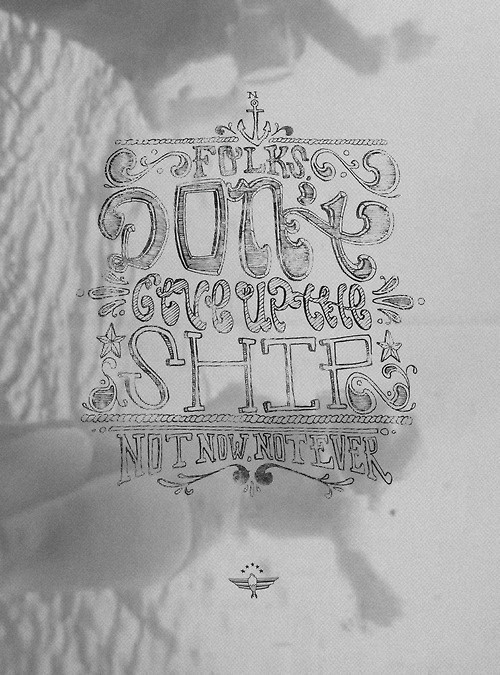 N
FOLKS,
DON't
Give up the
SHIP
NOT NOW. NOT EVER